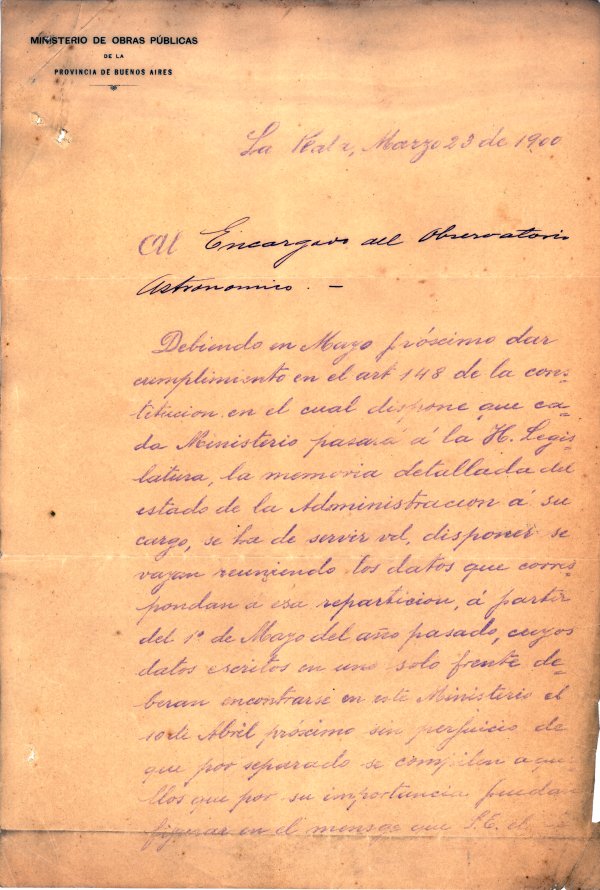 MINISTERIO DE OBRAS PÚBLICAS
DE LA
PROVINCIA DE BUENOS AIRES
La Plata, Marzo 23 de 1900
Al Encargado del Observatorio
Astronomico. —
Debiendo en Mayo próximo dar
cumplimiento en el art 148 de la cons-
titucion en el cual dispone que ca-
da Ministerio pasará á la H. Legis-
latura, la memoria detallada del
estado de la Administracion á su
cargo, se ha de servir vd, disponer se
vayan reuniendo los datos que corres-
pondan a esa reparticion, á partir
del 1º de Mayo del año pasado, cuyos
datos escritos en uno solo frente de-
beran encontrarse en este Ministerio el
10 de Abril próximo sin perjuicio de
que por separado se compilen aque-
llos que por su importancia puedan
figurar en el mensage que S.E. el